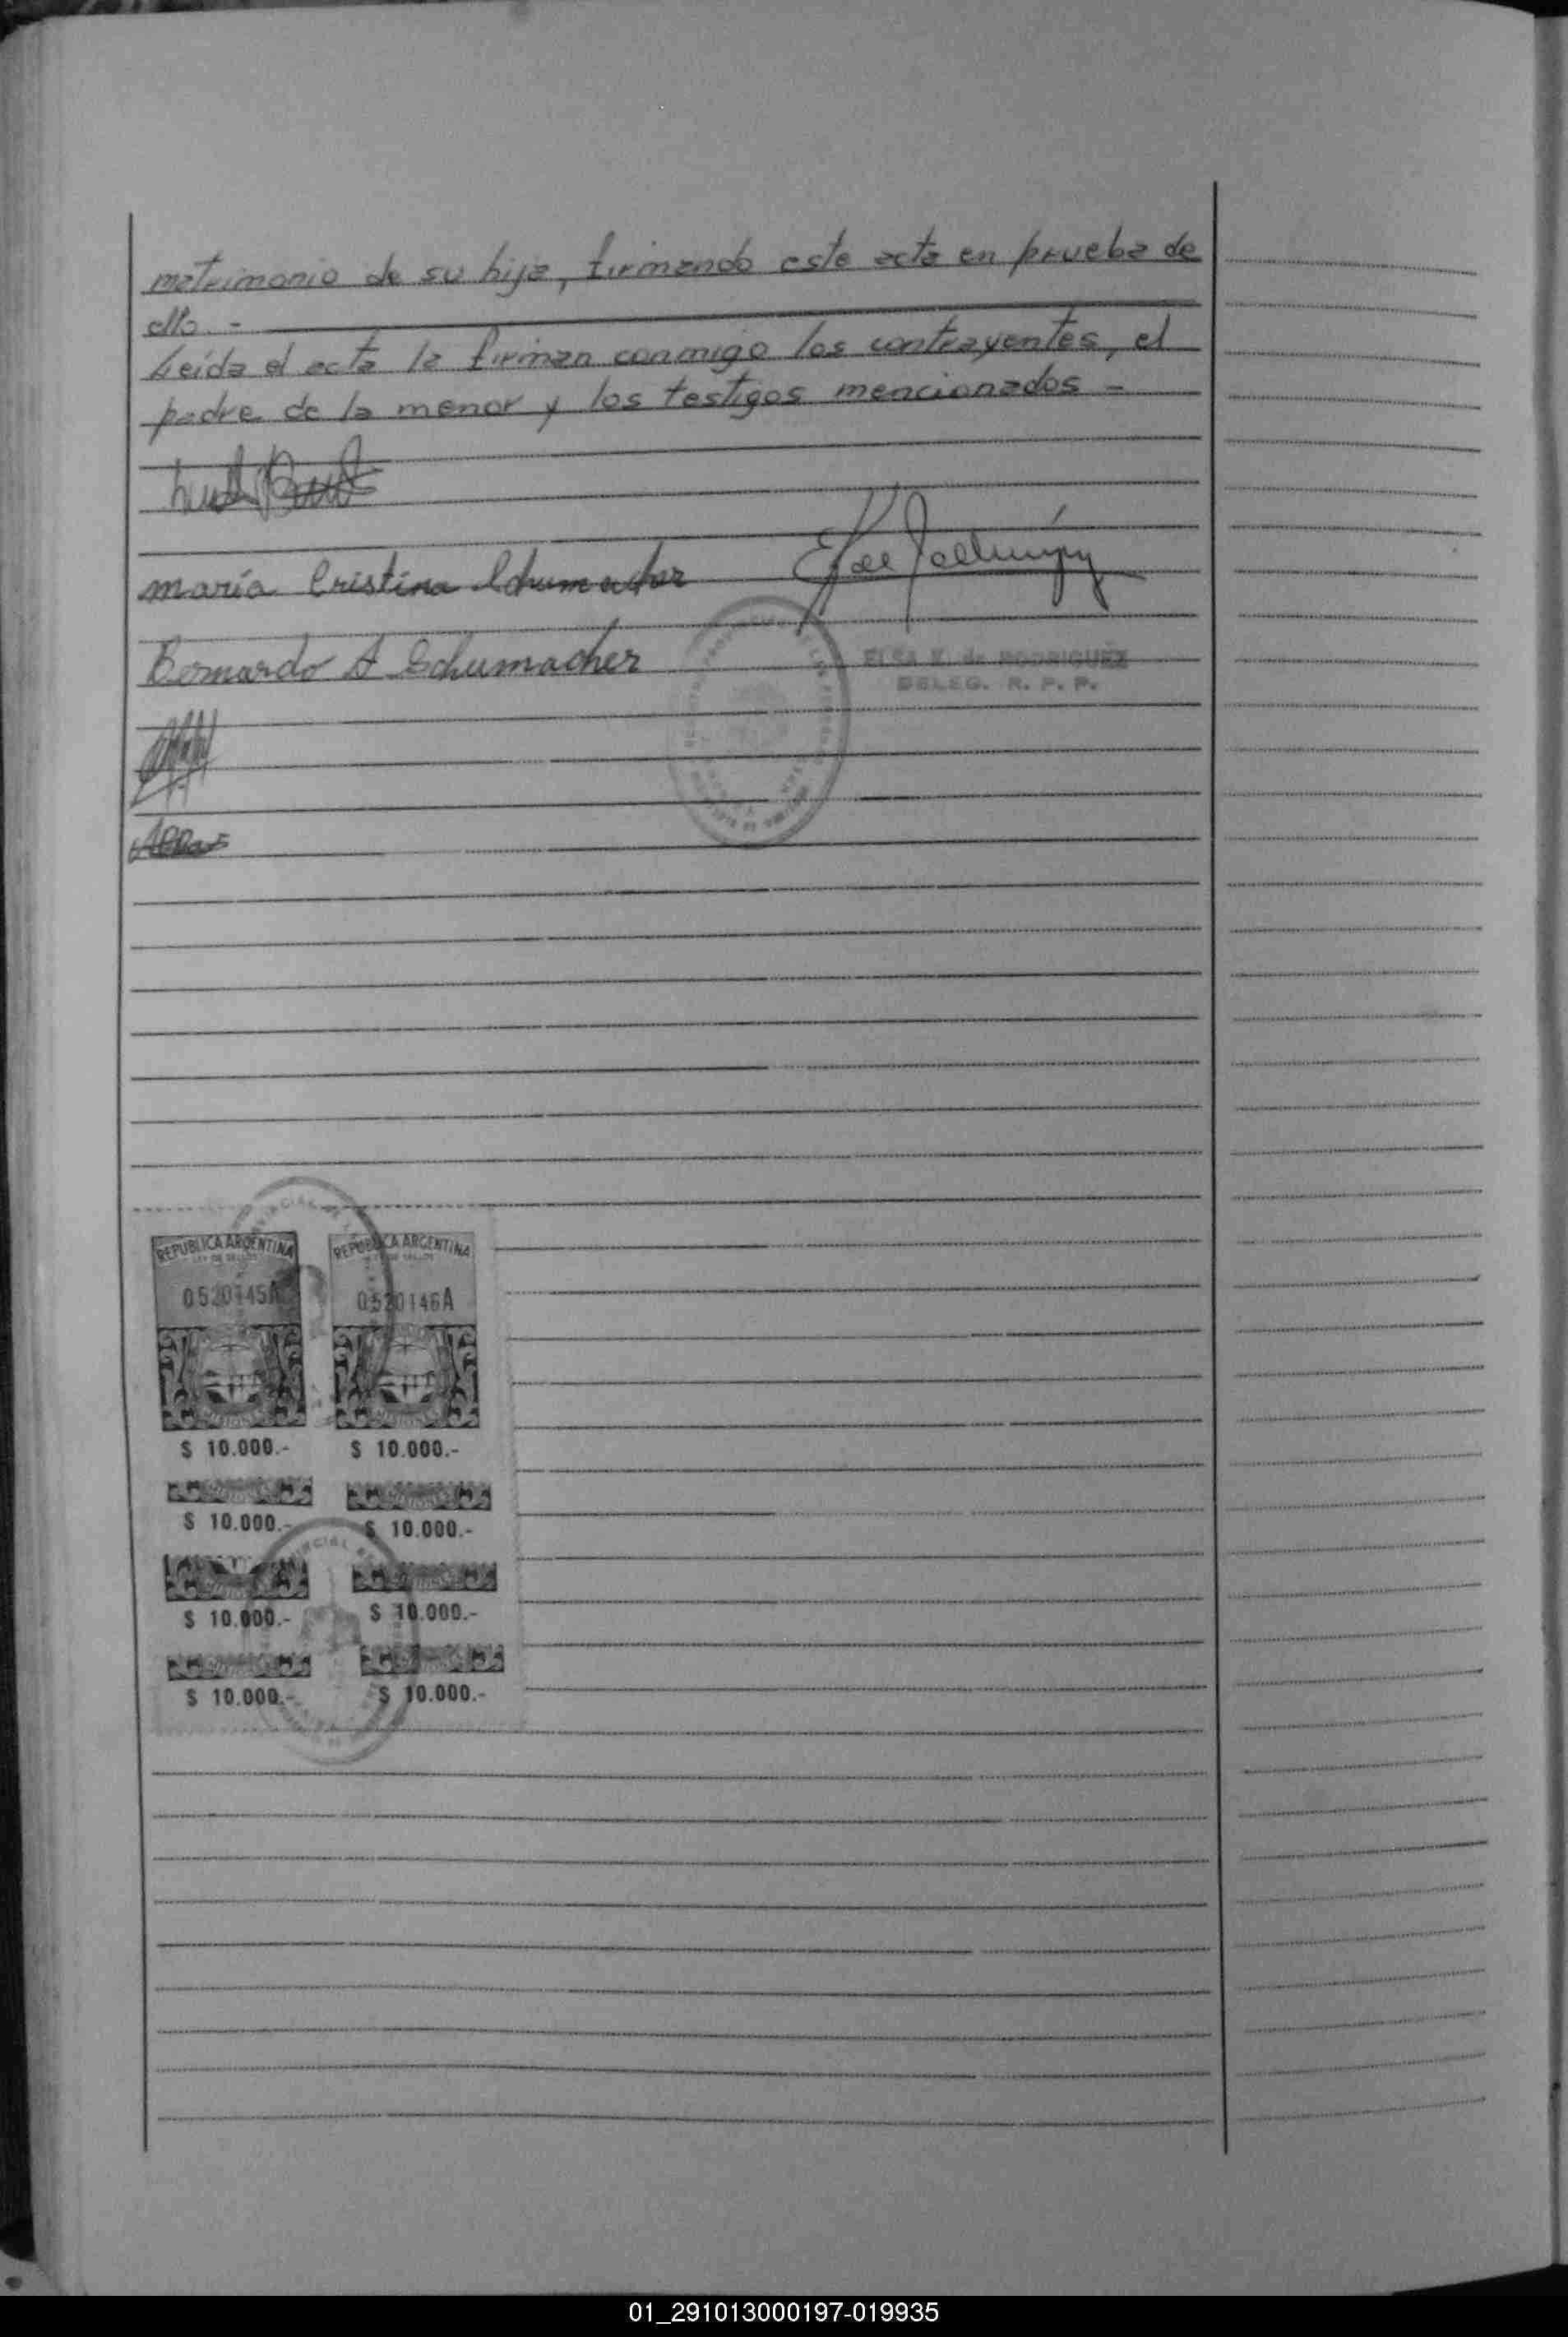 matrimonio de su hija, firmando este acta en prueba de
ello.-
Leída el acta la firman conmigo los contrayentes, el
padre de la menor y los testigos mencionados -
María Cristina Schumacher
Bernardo A Schumacher
ELSA K. de RODRIGUEZ
DELEG. R. P. P.
REPUBLICA ARGENTINA REPUBLICA ARGENTINA
LEY DE SELLOS LEY DE SELLOS
0520145A 0520146A
$ 10.000.- $ 10.000.-
$ 10.000.- $ 10.000.-
$ 10.000.- $ 10.000.-
$ 10.000.- $ 10.000.-
01_291013000197-019935